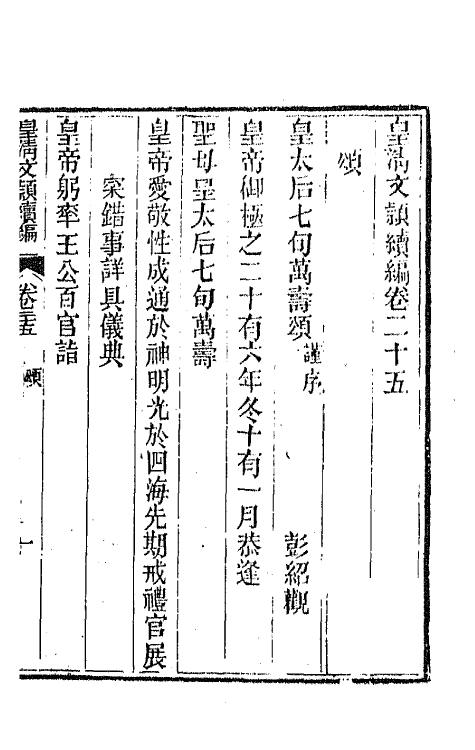 皇淸文頴續編卷二十五
頌
皇太后七旬萬壽頌謹序
彭紹觀
皇帝御極之二十有六年冬十有一月恭逢
聖母皇太后七旬萬壽
皇帝愛敬性成通於神明光於四海先期戒禮官展
寀錯事詳具儀典
皇帝躬率王公百官詣
皇淸文頴續編
卷二十五
頌
一